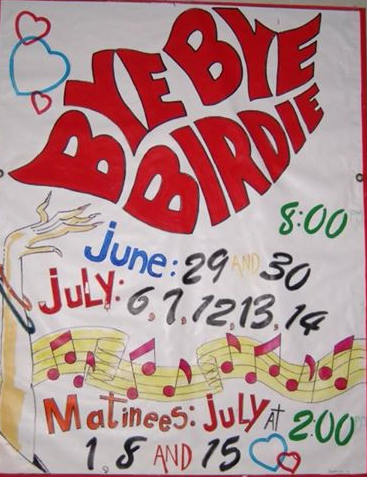 BYE BYE
BIRDIE
8:00
June: 29 AND 30
JULY: 6, 7, 12, 13, 14
Matinees: JULY AT 2:00
1, 8 AND 15